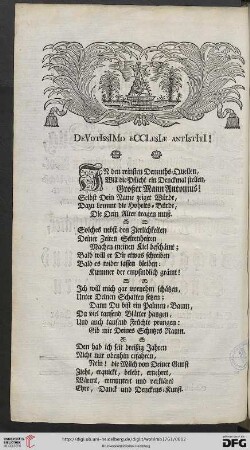 DeVotIssIMo eCCLesIæ antIstItI!
IN den reinsten Demuths-Quellen,
Will die Pflicht ein Denckmal stellen,
Großer Mann Antonius!
Selbst Dein Nam zeiget Würde,
Dazu kommt die Hoheits-Bürde,
Die Dein Alter tragen muß.
Solches nebst den Zierlichkeiten
Deiner Zeiten Seltenheiten
Machen meinen Kiel beschämt;
Bald will er Dir etwas schreiben
Bald es wider lassen bleiben:
Kummer der empfindlich grämt!
Ich will mich gar vornehm schätzen,
Unter Deinen Schatten setzen:
Dann Du bist ein Palmen-Baum,
Da viel tausend Blätter hangen,
Und auch tausend Früchte prangen:
Gib mir Deines Schutzes Raum.
Den hab ich seit dreißig Jahren
Nicht nur obenhin erfahren,
Nein! die Milch von Deiner Gunst
Zieht, erquickt, belebt, ernehret,
Wärmt, ermuntert und verkläret
Ehre, Danck und Denckens-Kunst.
DFG